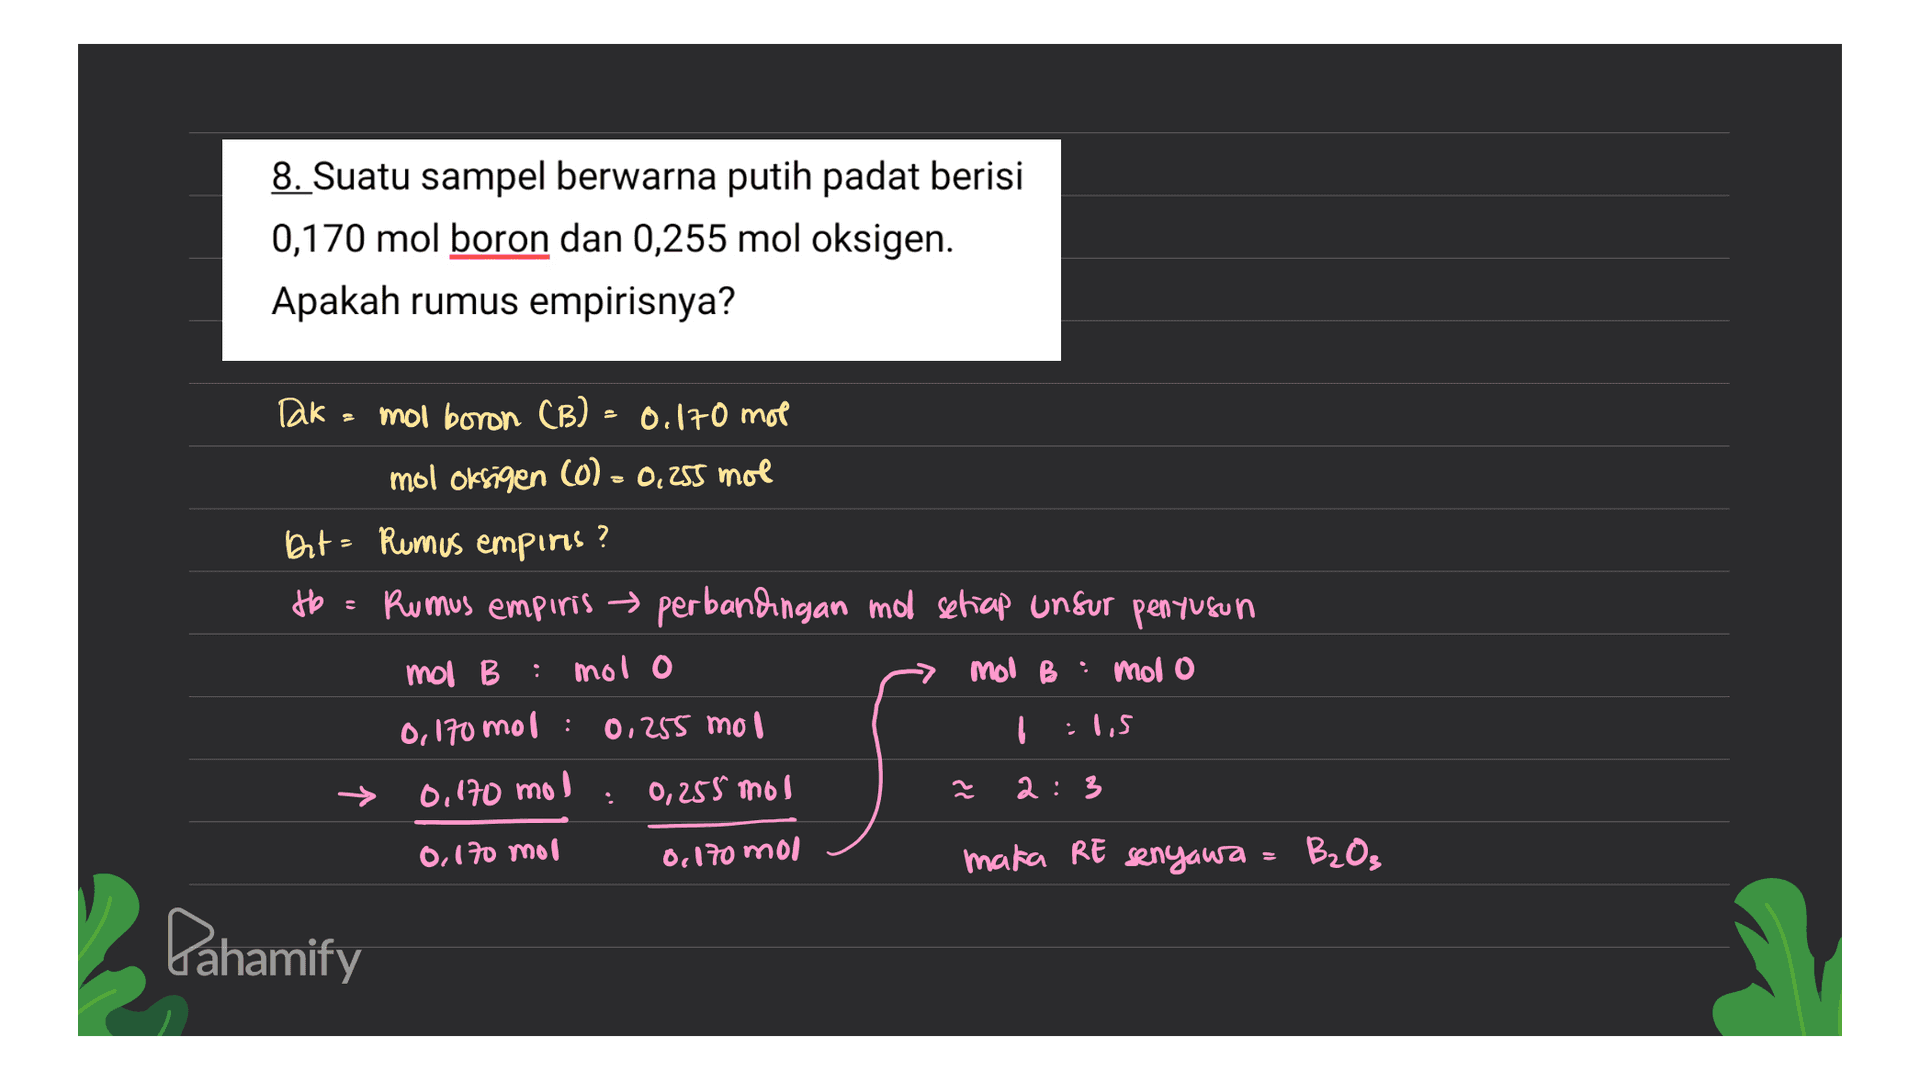 8. Suatu sampel berwarna putih padat berisi
0,170 mol boron dan 0,255 mol oksigen.
Apakah rumus empirisnya?
Dik = mol boron (B) = 0.170 mol
mol oksigen (O) = 0,255 mol
Dit = Rumus empiris ?
Jb = Rumus empiris → perbandingan mol setiap unsur penyusun
mol B : mol O
0,170 mol : 0,255 mol
→ 0,170 mol : 0,255 mol
0,170 mol 0,170 mol
→ mol B : mol O
1 : 1,5
≈ 2 : 3
maka RE senyawa = B₂O₃
Pahamify